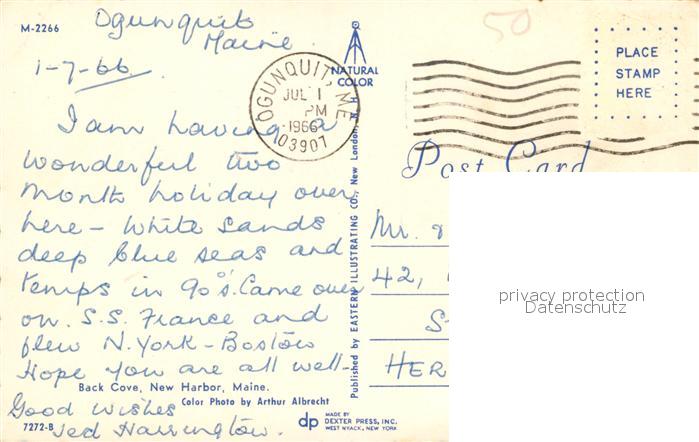 M-2266
Ogunquit
Maine.
1-7-66
I am having a
wonderful two
month holiday over
here - White sands
deep blue seas and
temps in 90°s. Came over
on. S.S. France and
flew N.York - Boston
Hope you are all well-
Back Cove, New Harbor, Maine.
Color Photo by Arthur Albrecht
Good wishes
7272-B
Ted Harrington.
NATURAL
COLOR
OGUNQUIT, ME
JUL 1
PM
1966
03907
Published by EASTERN ILLUSTRATING CO., New London, N. H.
dp
MADE BY
DEXTER PRESS, INC.
WEST NYACK, NEW YORK
50
PLACE
STAMP
HERE
Post Card
Mr. &
42,
S
HER
privacy protection
Datenschutz